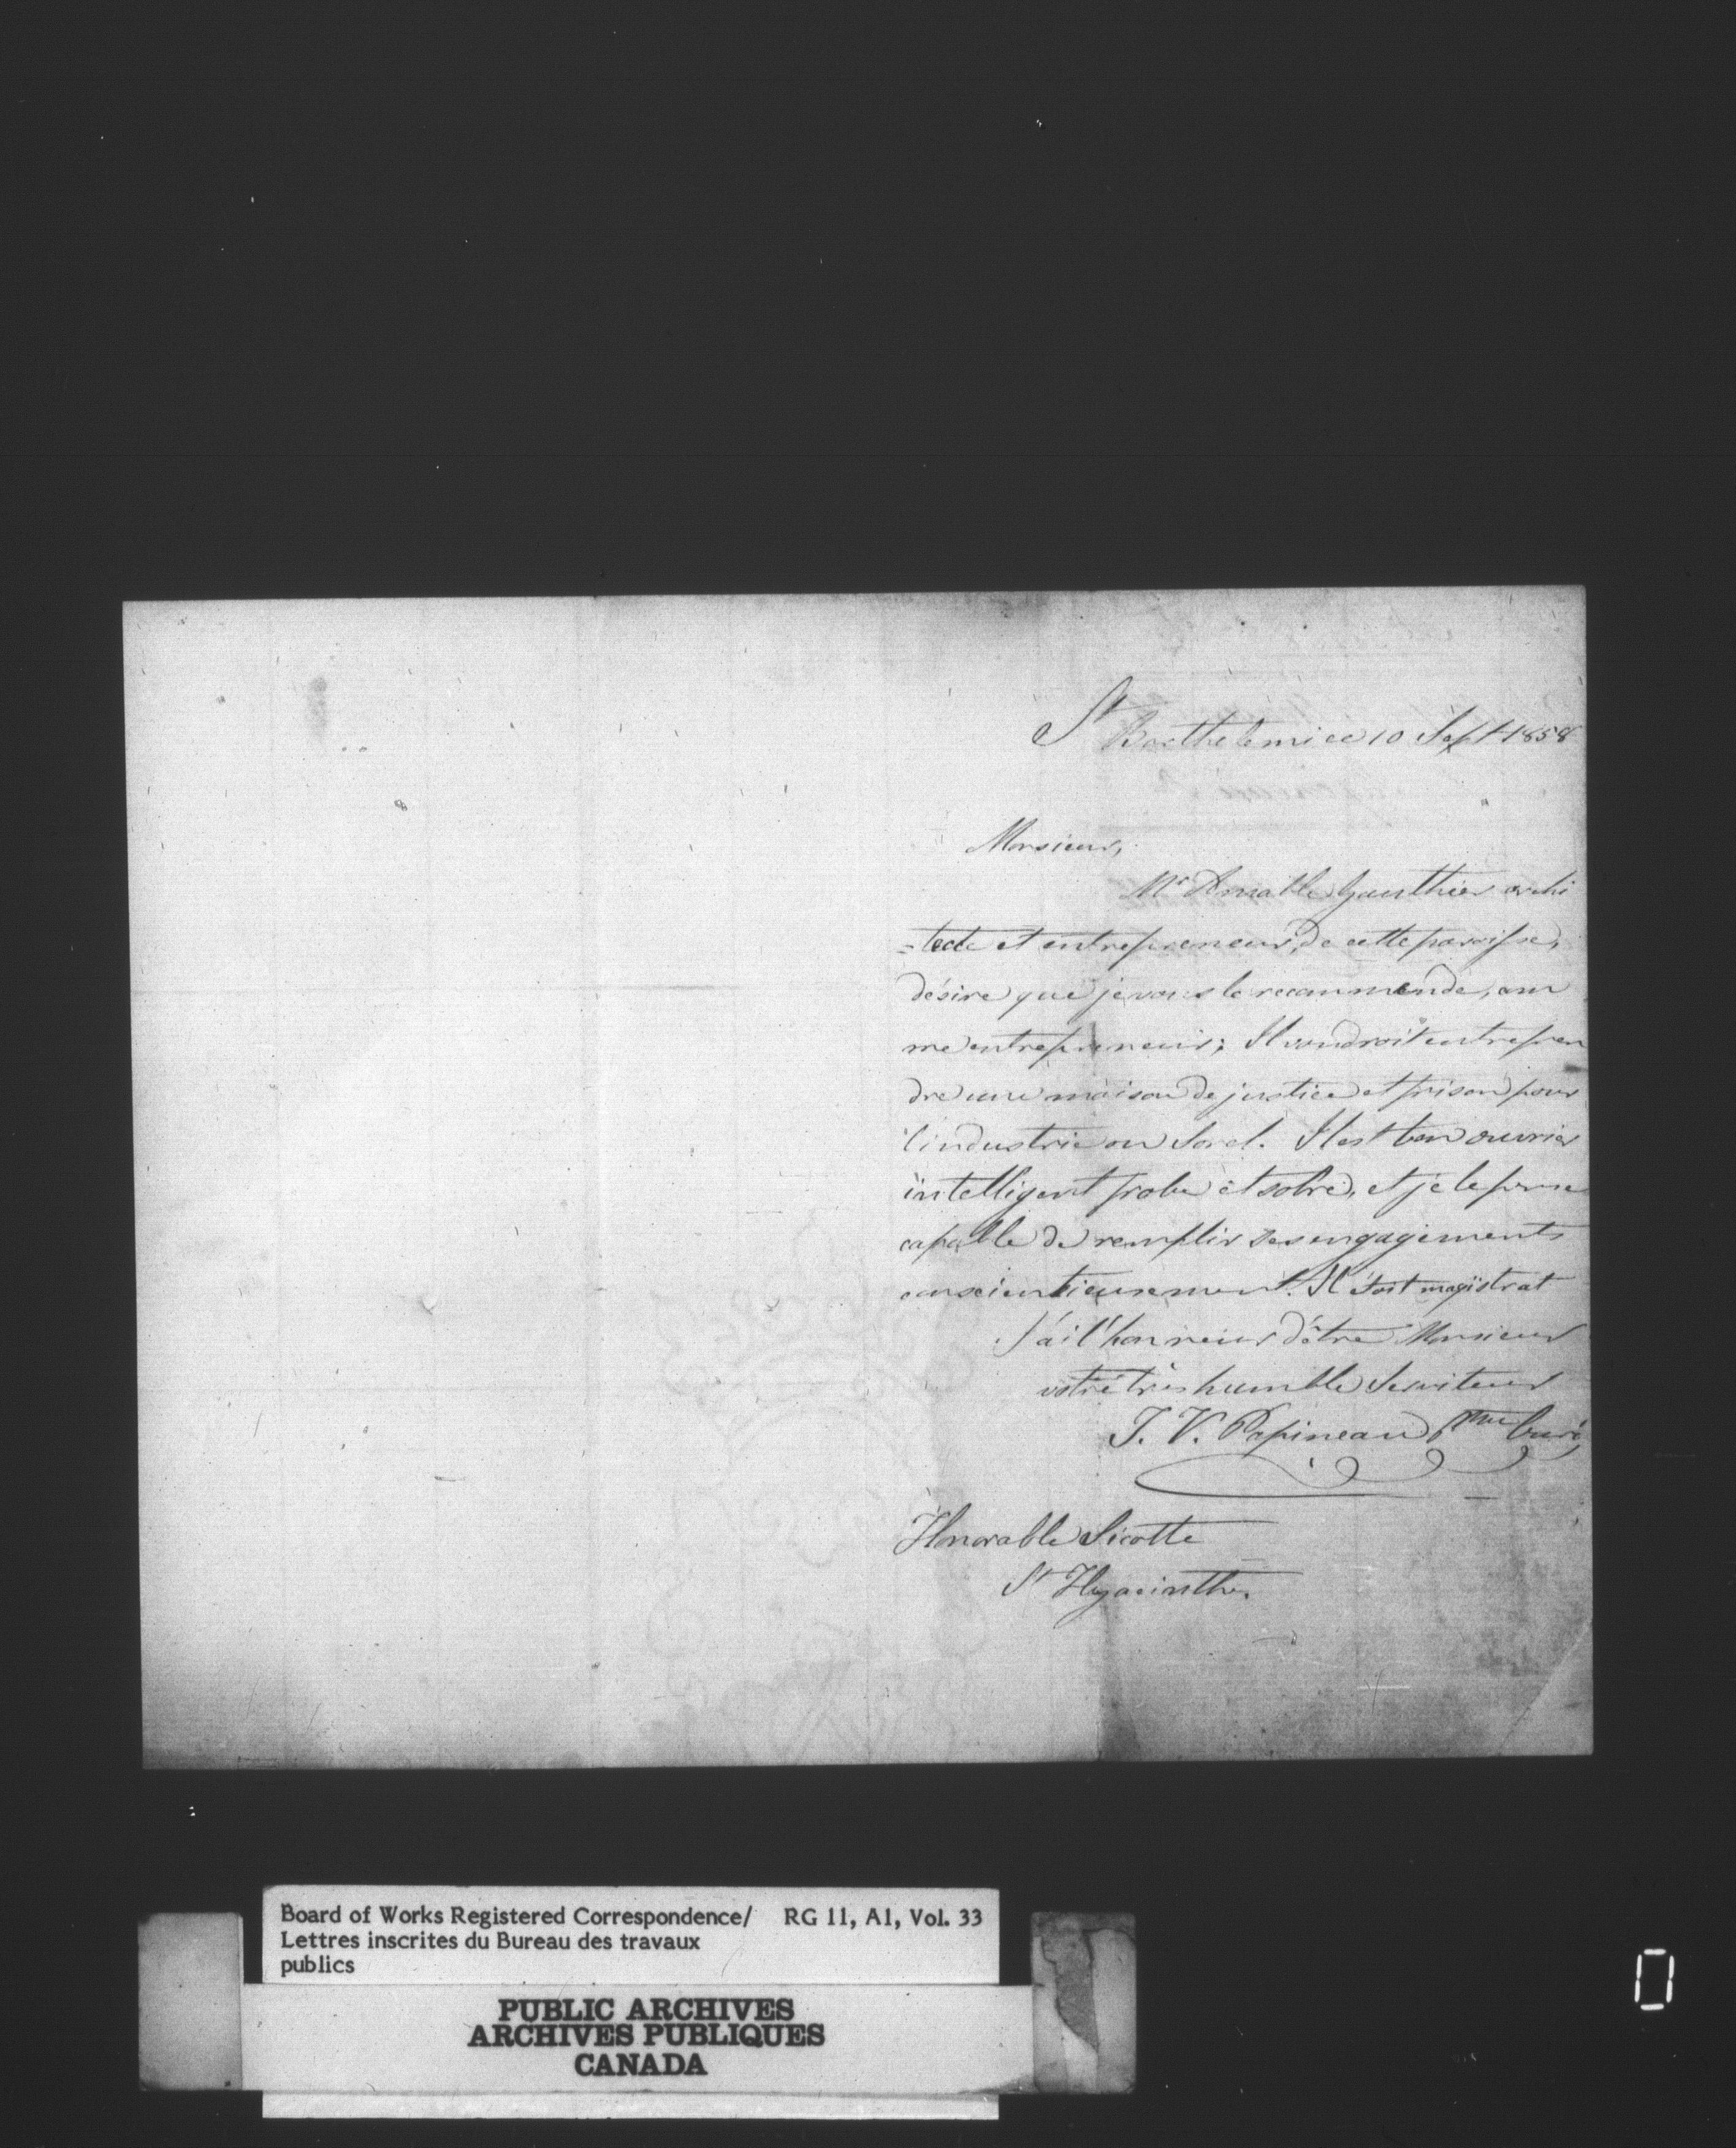 St Barthelemi ce 10 Sept 1858
Monsieur,
Mr Amable Gauthier archi
=tecte et entrepreneur, de cette paroisse,
désire que je vous le recommende, com
me entrepreneur; Il voudroit entrepren
dre une maison de justice et prison pour
l'industrie ou Sorel. Il est bon ouvrier
intelligent probe et sobre, et je le pense
capable de remplir ses engagements
consciencieusement. Il est magistrat
J'ai l'honneur d'être Monsieur
votre très humble Serviteur
J. V. Papineau Ptre Curé
Honorable Sicotte
St Hyacinthe.
Board of Works Registered Correspondence/ RG 11, A1, Vol. 33
Lettres inscrites du Bureau des travaux
publics
PUBLIC ARCHIVES
ARCHIVES PUBLIQUES
CANADA